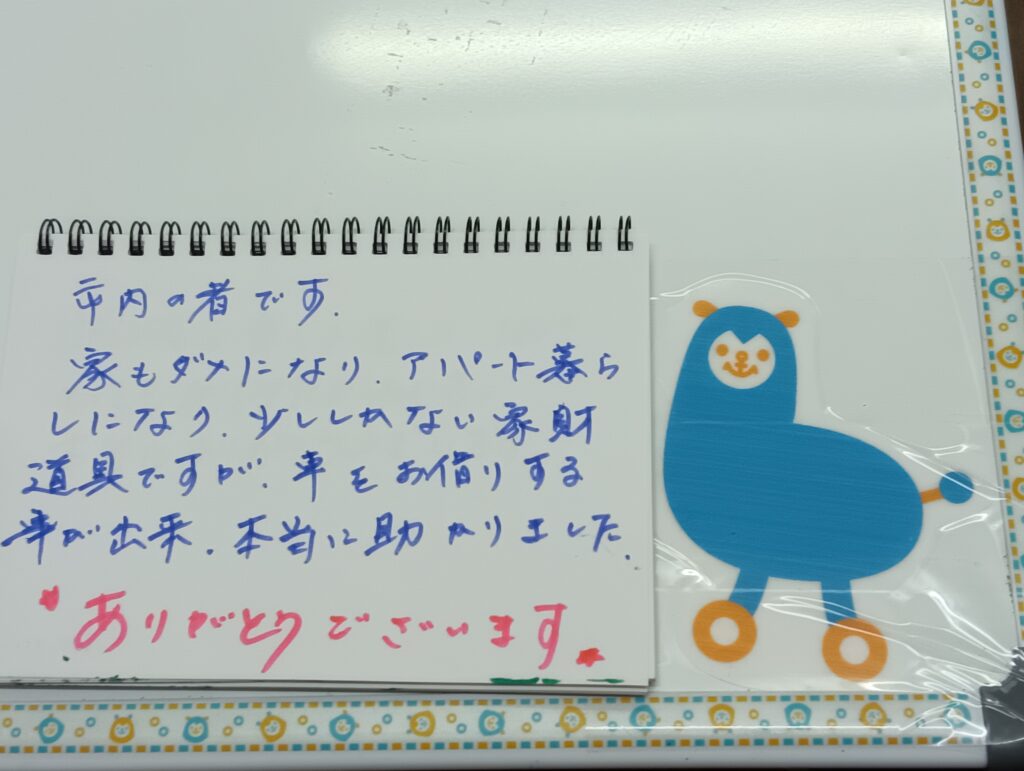 市内の者です.
家もダメになり.アパート暮ら
しになり.少ししかない家財
道具ですが.車をお借りする
事が出来.本当に助かりました.
ありがとうございます